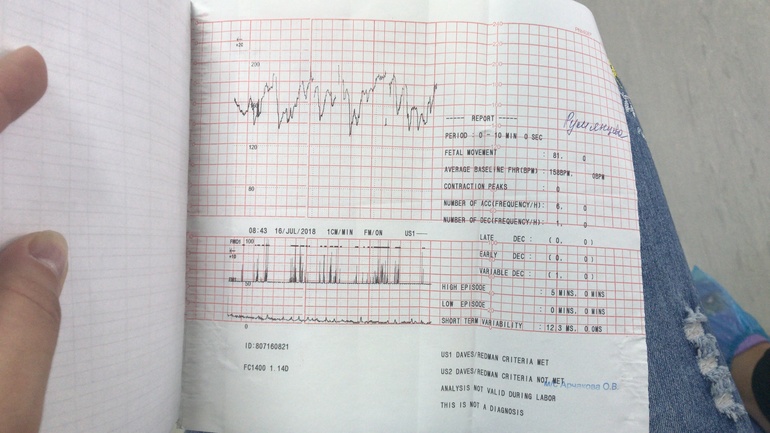 200
120
80
08:43 16/JUL/2018 1CM/MIN FM/ON US1
100
50
0
ID:807160821
FC1400 1.14D
----- REPORT -----
PERIOD : 0 - 10 MIN 0 SEC
FETAL MOVEMENT : 81. 0
AVERAGE BASELINE FHR(BPM) : 158BPM. 0BPM
CONTRACTION PEAKS : 0
NUMBER OF ACC(FREQUENCY/H): 6. 0
NUMBER OF DEC(FREQUENCY/H): 1. 0
LATE DEC : ( 0. 0 )
EARLY DEC : ( 0. 0 )
VARIABLE DEC : ( 1. 0 )
HIGH EPISODE : 5 MINS. 0 MINS
LOW EPISODE : 0 MINS. 0 MINS
SHORT TERM VARIABILITY : 12.3 MS. 0.0MS
US1 DAVES/REDMAN CRITERIA MET
US2 DAVES/REDMAN CRITERIA NOT MET
м/с Арчакова О.В.
ANALYSIS NOT VALID DURING LABOR
THIS IS NOT A DIAGNOSIS